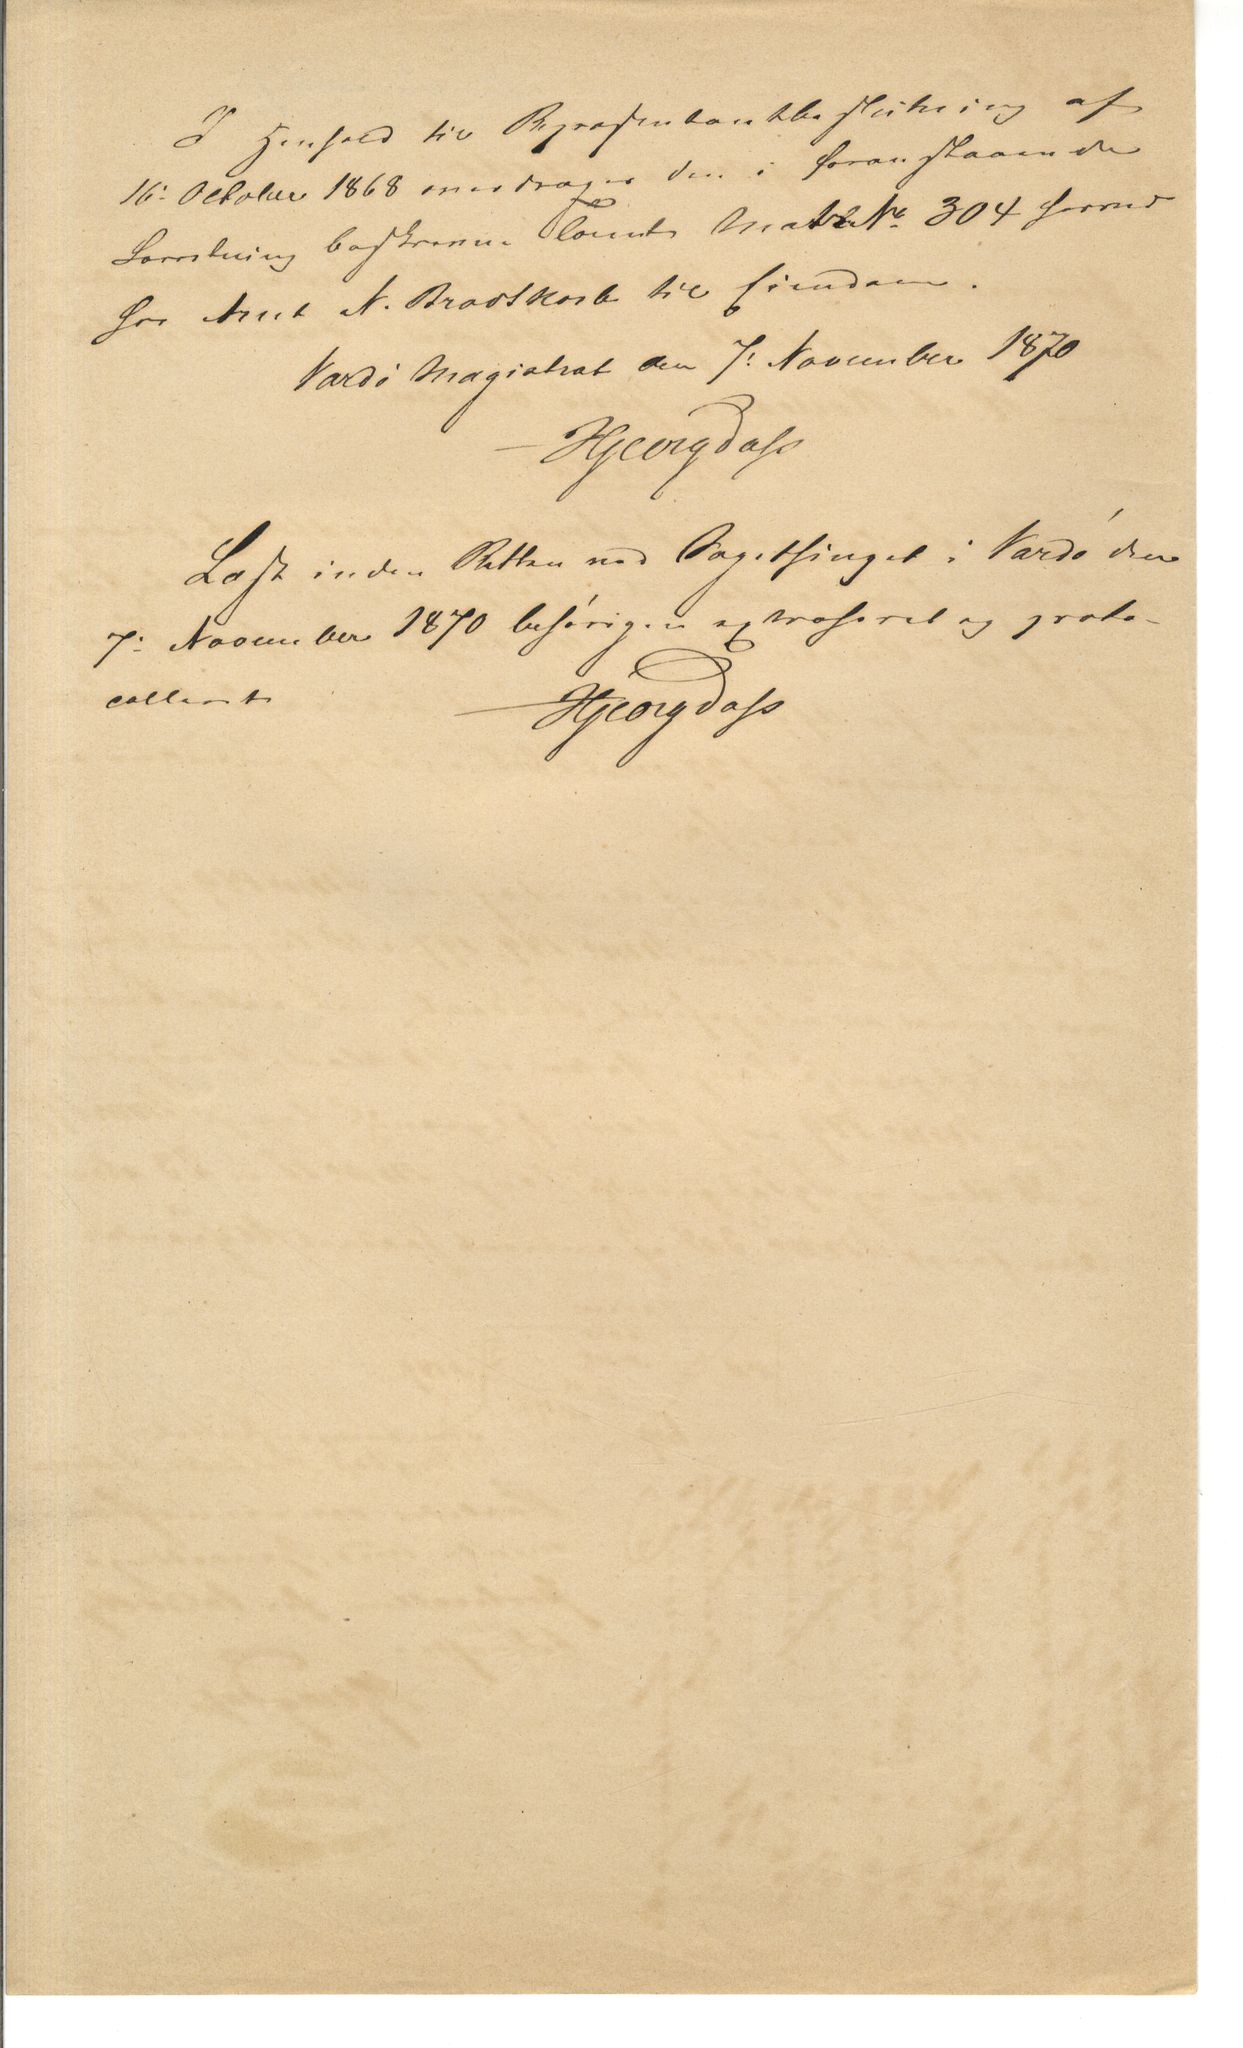 I Henhold til Repræsentantbeslutning af
16: October 1868 overdrages den i foranstaaende
Forretning beskrevne Tomt Matr No. 304 herved
hr Arnt N. Bradtkorb til Eiendom.
Vardö Magistrat den 7: November 1870
HGeorgDass
Læst inden Retten ved Bagetthinget i Vardö den
7: November 1870 behörigen extraheret og proto-
colleret
HGeorgDass